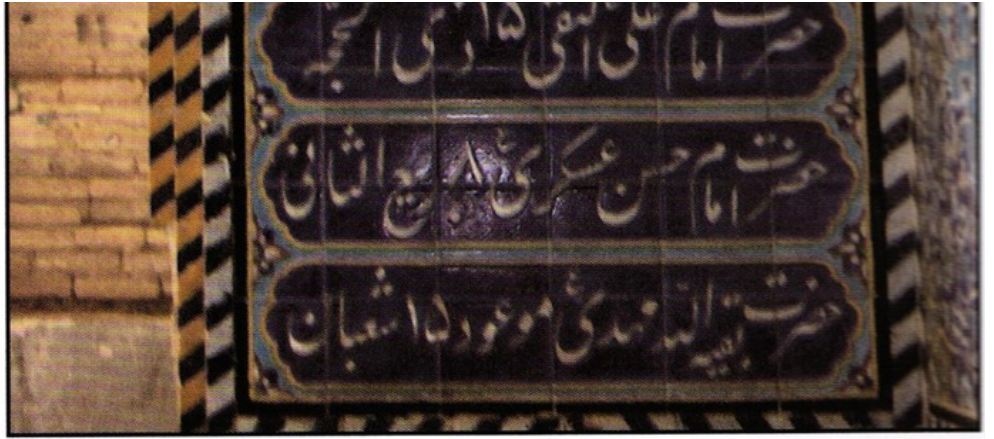 حضرت امام علی النقی ۱۵ ذی الحجه
حضرت امام حسن عسکریؑ ۸ ربیع الثانی
حضرت بقیه الله مهدیؑ موعود ۱۵ شعبان